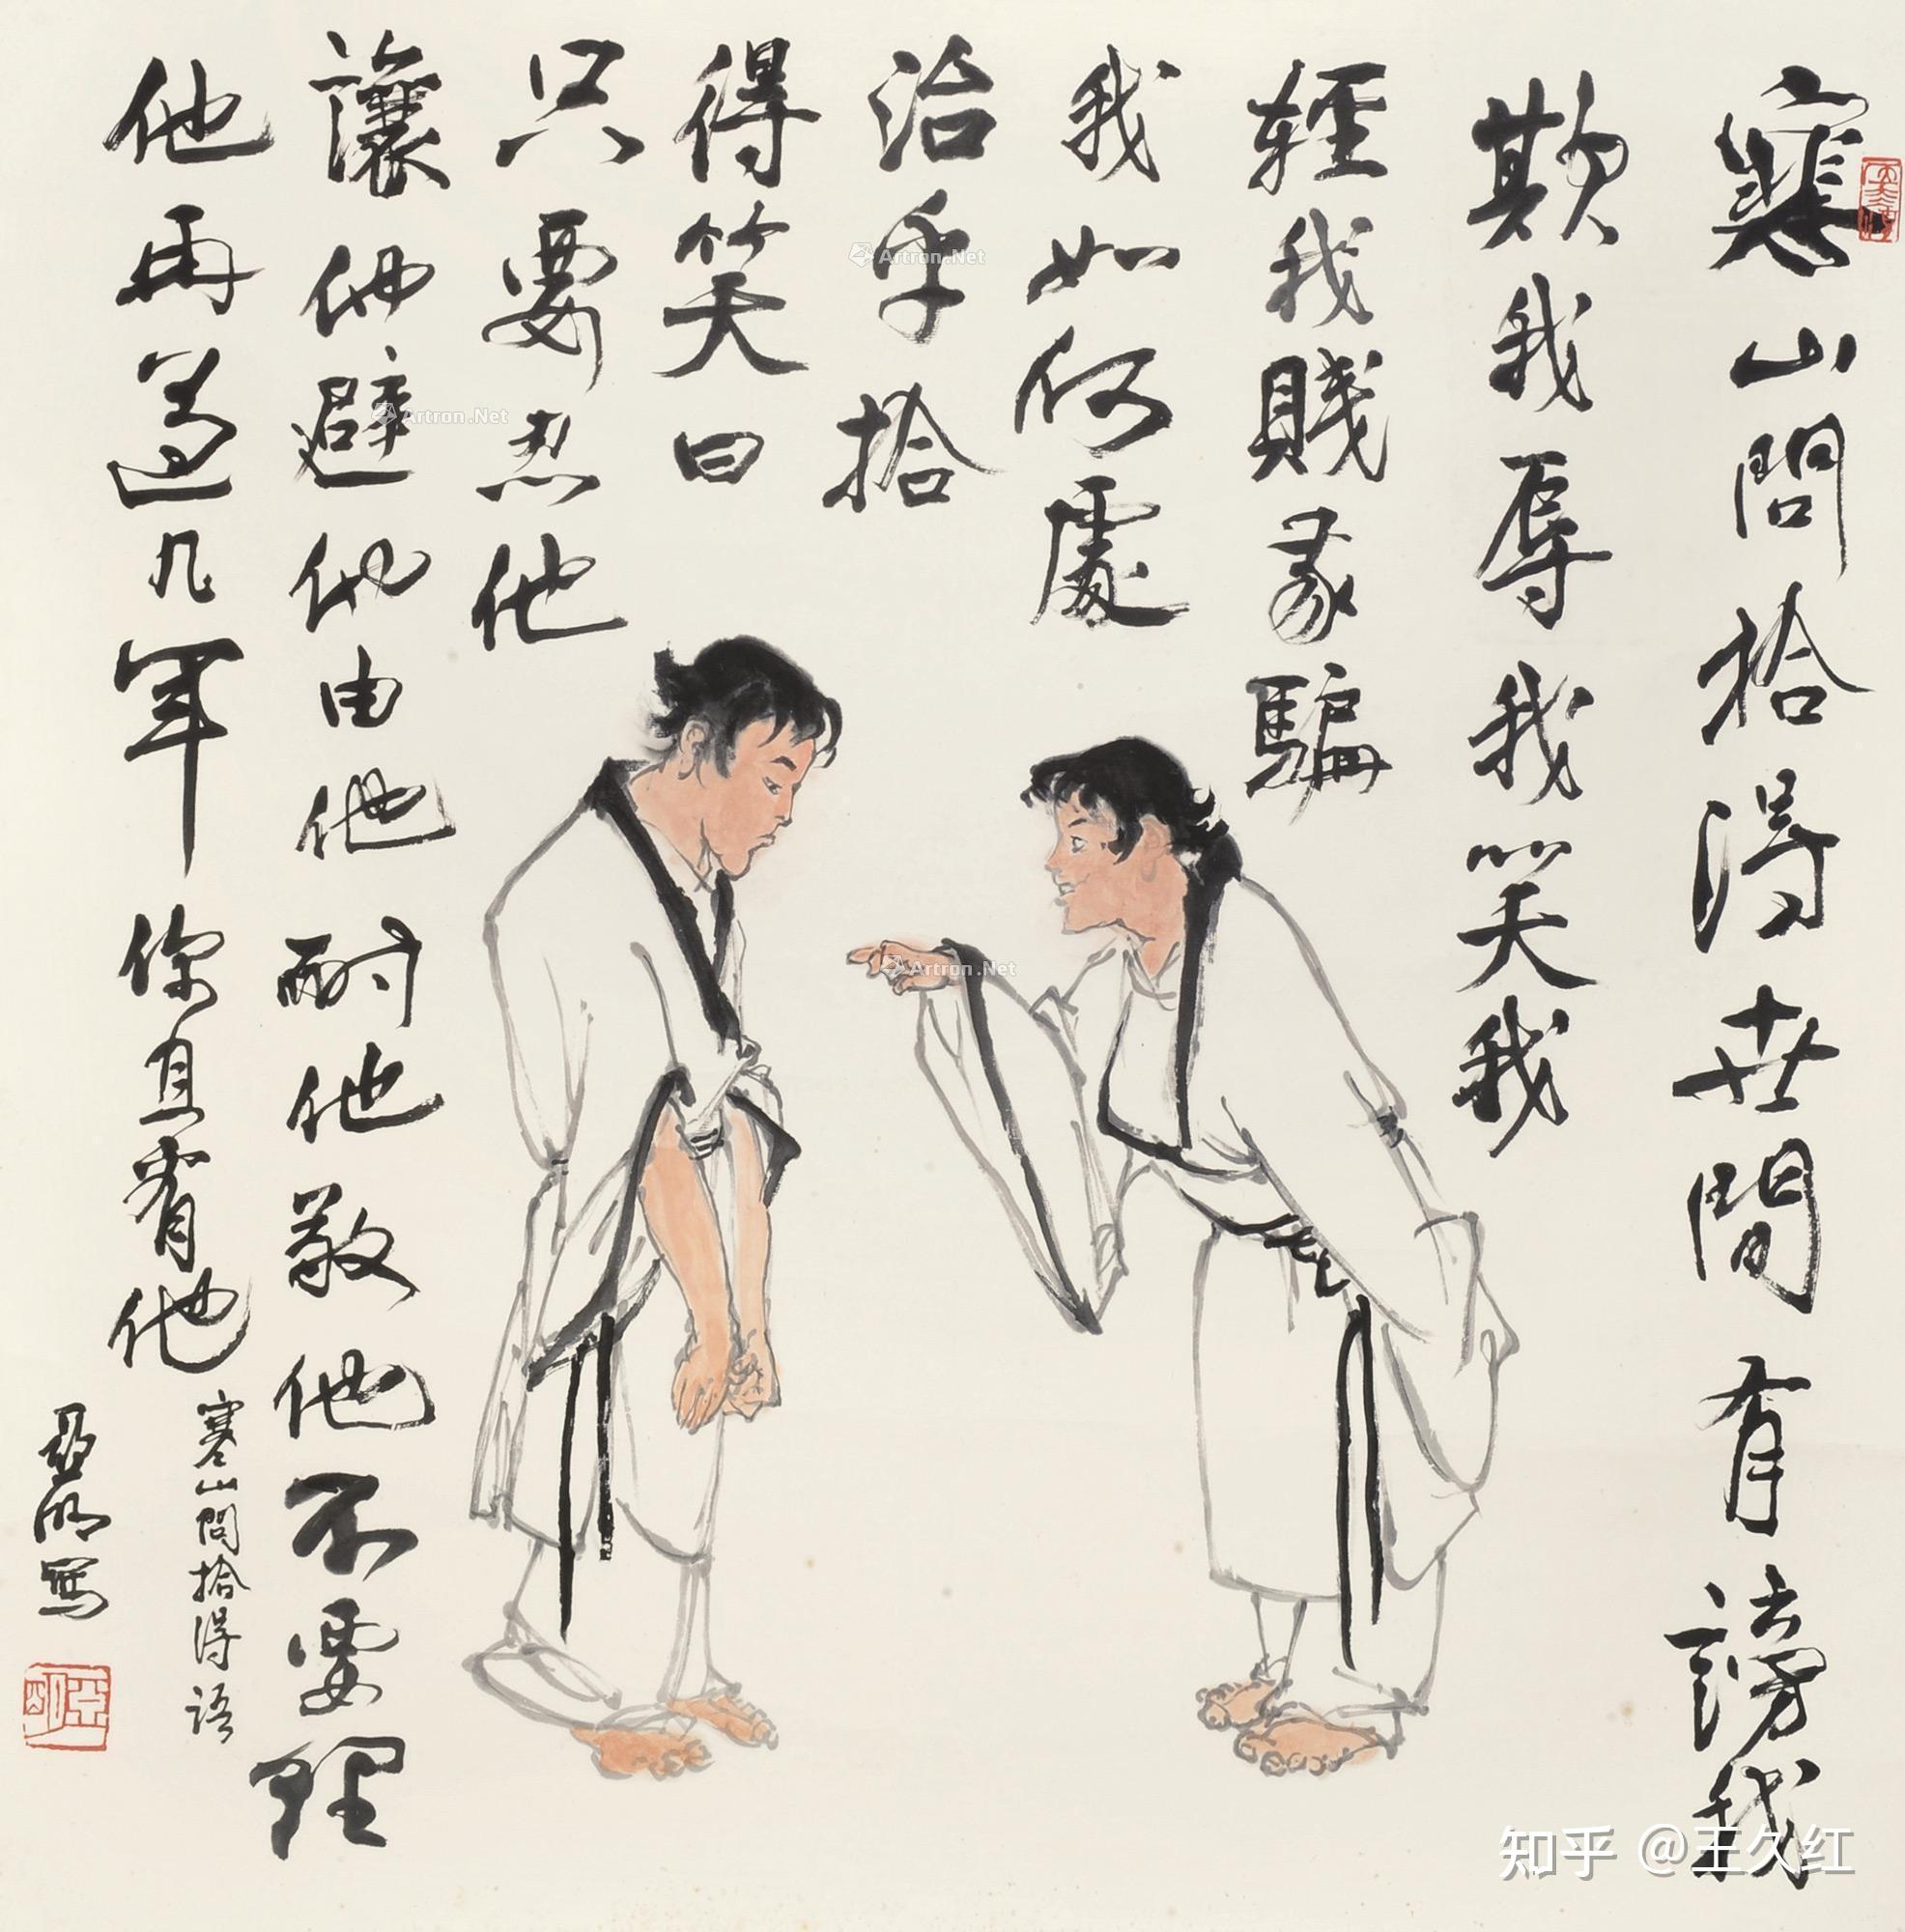 寒山問拾得世間有謗我
欺我辱我笑我
輕我賤我騙
我如何處
治乎拾
得笑曰
只要忍他
讓他避他由他耐他敬他不要理
他再過几年你且看他
寒山問拾得語
亞明寫
亞明
Artron.Net
Artron.Net
Artron.Net
知乎 @王久红